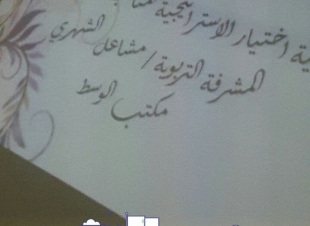 اختيار الاستراتيجية
المشرفة التربوية / مشاعل الشهري
مكتب الوسط